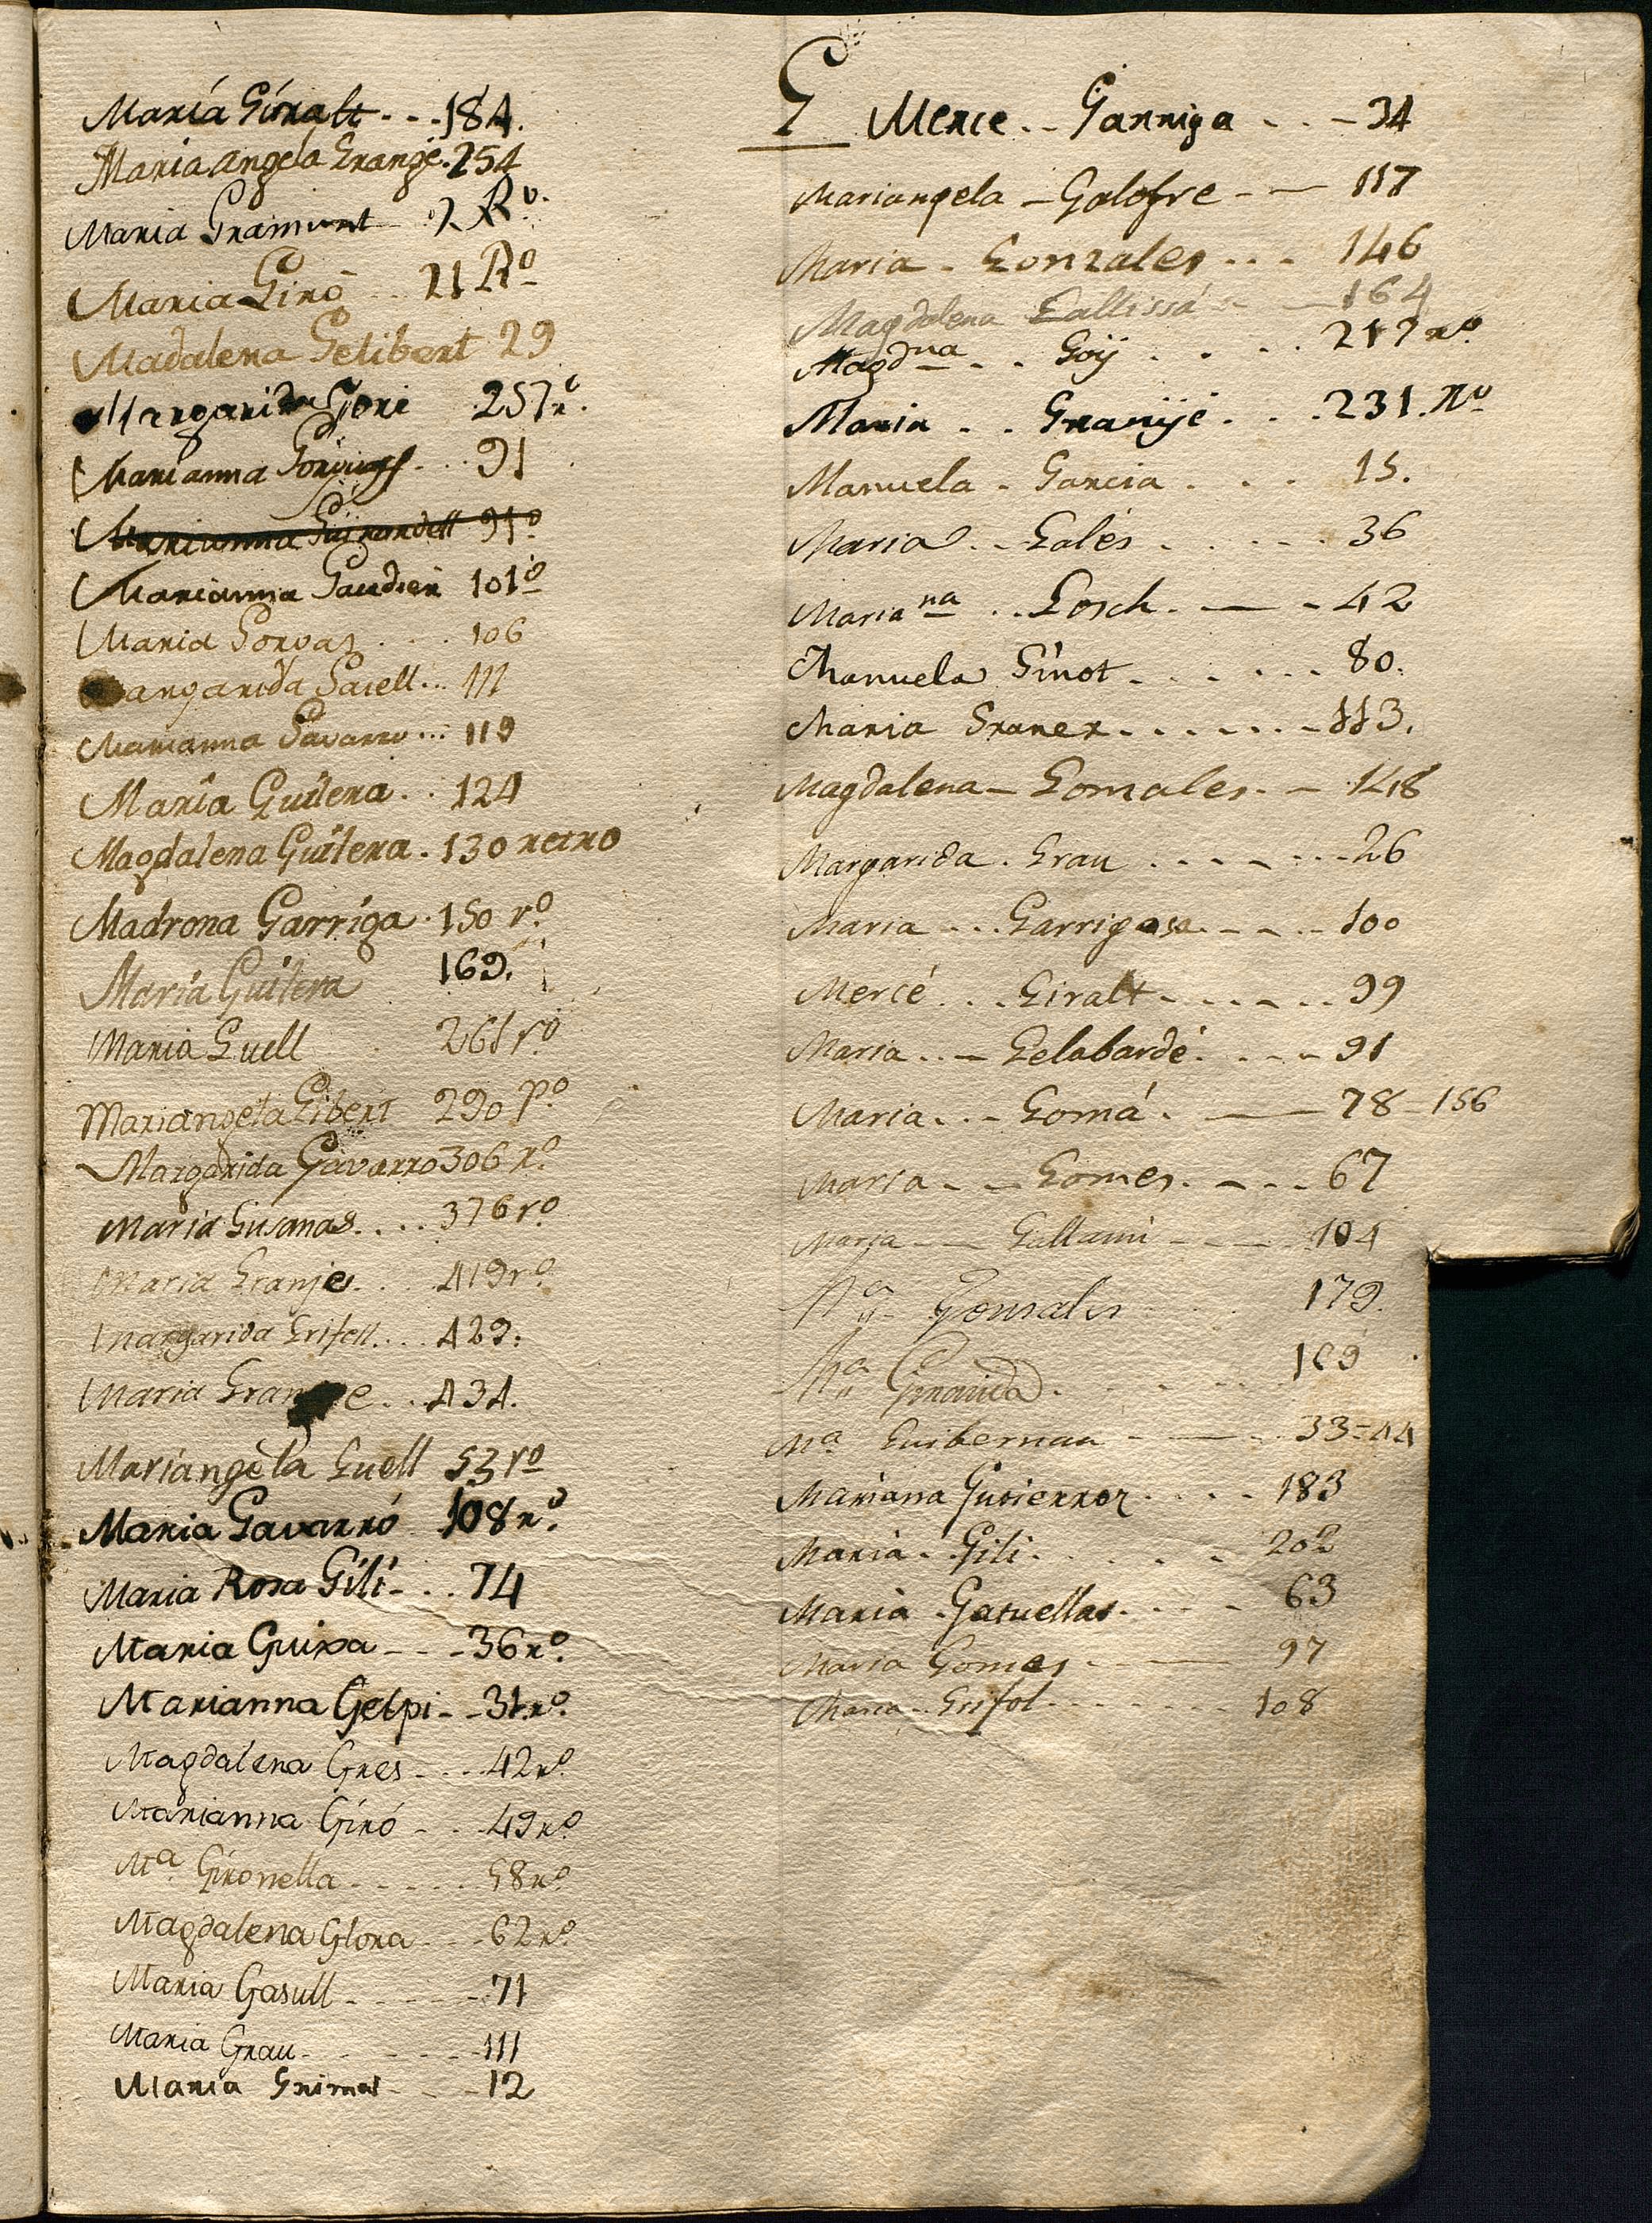 María Giralt - - - 184.
Maria angela Grange. 254
Maria Gramunt 2 Rº.
Maria Giró .. 21 Rº
Madalena Gelibert 29
Margarida Gori 257 rº.
Marianna ... 91
Marianna 91º
Marianna Gaudier 101º
Maria Gorvas . . . 106
Margarida Saiell... 111
Marianna Gavarro... 119
María Guilera. . 124
Magdalena Guilera. 130 retro
Madrona Garriga. 150 rº
María Guilera 169.
Maria Guell 261 rº
Mariangela Gibert 290 rº
Margarida Gavarro 306 rº.
Maria Gusanas. . . . 376 rº
Maria Granjes. . 419 rº
Margarida Grifoll. . . 429.
Maria . . 434.
Mariangela Guell 53 rº
Maria Gavarró 108 rº.
Maria Rosa Gili - . . 74
Maria Guixa - - - 36 rº.
Marianna Gelpi - - 31 rº.
Magdalena Gres - . . 42 rº.
Marianna Giró - . . 49 rº.
Mª. Gironella - - - - - 58 rº.
Magdalena Glora - - - 62 rº.
Maria Gasull - - - - - 71
Maria Grau - - - - - - 111
Maria Grimas - - - 12
G Merce. . Garriga - . - 34
Mariangela - Galofre - — 117
Maria - Gonzales . . . 146
Magdalena Gallissá - — 164
Magdna . . Goÿ . . . . 217 rº.
Maria . . Granÿé . . . 231. Rº
Manuela - Garcia . . . 15.
Maria . . Galés . . . . . 36
Mariana . . Gosch. — - 42
Manuela Ginot - . . . . . 80.
Maria Graner . . . . . . - 113.
Magdalena - Gomales. - 148
Margarida . Grau . . . - . . . 26
Maria . . . Garrigosa. - - - - 100
Mercé . . . Giralt - . . . . . 99
Maria . . - Gelabardé . . . - 91
Maria . . - Gomá . — 78 - 156
Maria - - Gomes. - - - 67
Maria - — Gallami - - — 104
Mª Gonsales . . . 179.
Mª . . . . . 109
Mª Guibernau - — - 33=44
Mariana Gutierrez . . . - 183
Maria - Gili . . . . . - 202
Maria - Gatuellas. . . . - 63
Maria Gomes - — 97
Maria - Grifol - - - - - - 108